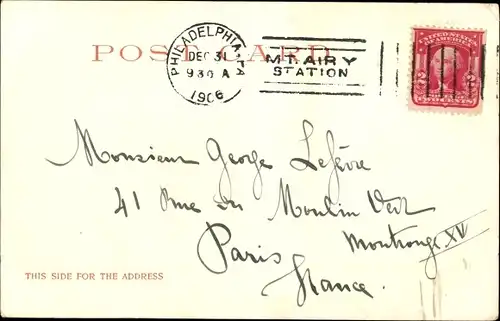 POST CARD
PHILADELPHIA, PA
DEC 31
930 A
1906
MT. AIRY
STATION
UNITED STATES
OF AMERICA
2 2
TWO CENTS
Monsieur George Lefèvre
41 Rue du Moulin Vert
Montrouge XV
Paris
France.
THIS SIDE FOR THE ADDRESS